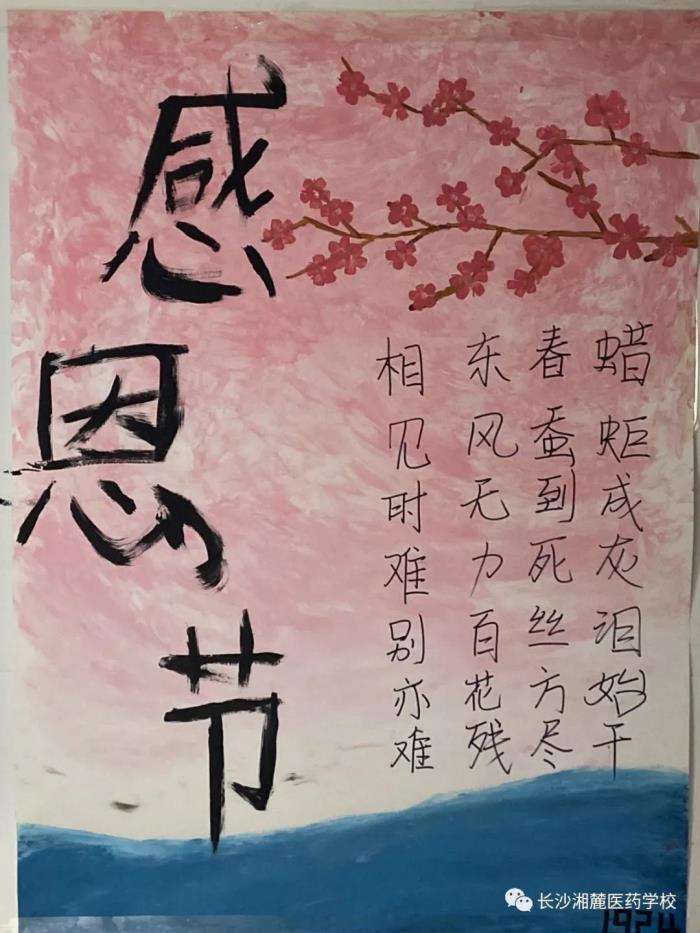 感恩节
相见时难别亦难
东风无力百花残
春蚕到死丝方尽
蜡蚷成灰泪始干
1924
长沙湘麓医药学校